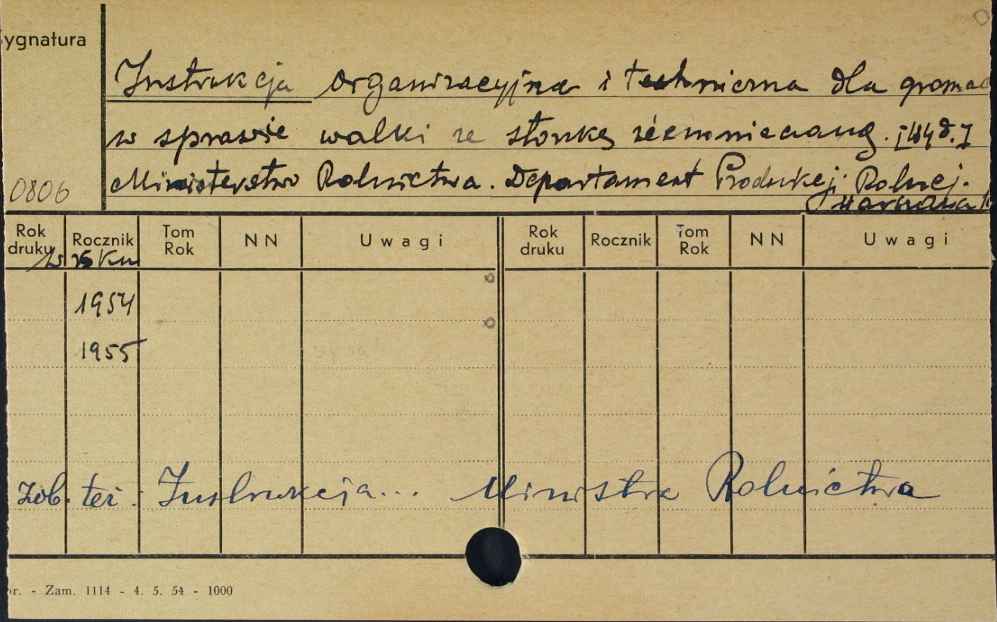 ygnatura
Instrukcja organizacyjna i techniczna dla gromad
w sprawie walki ze stonką ziemniaczaną. [Wyd.]
0806 Ministerstwo Rolnictwa. Departament Produkcji Rolnej.
Rok druku Rocznik Tom Rok NN Uwagi Rok druku Rocznik Tom Rok NN Uwagi
w roku
1954
1955
zob. też. Instrukcja... Ministra Rolnictwa
r. - Zam. 1114 - 4. 5. 54 - 1000